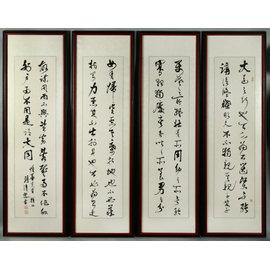 大道之行也天下為公選賢與能
講信修睦故人不獨親其親不獨子其子
使老有所終壯有所用幼有所長
寡孤獨廢疾者皆有所養男有分
女有歸貨惡其棄於地也不必藏
於己力惡其不出於身也不必為己是
故謀閉而不興盜竊亂賊而不作故
外戶而不閉是謂大同